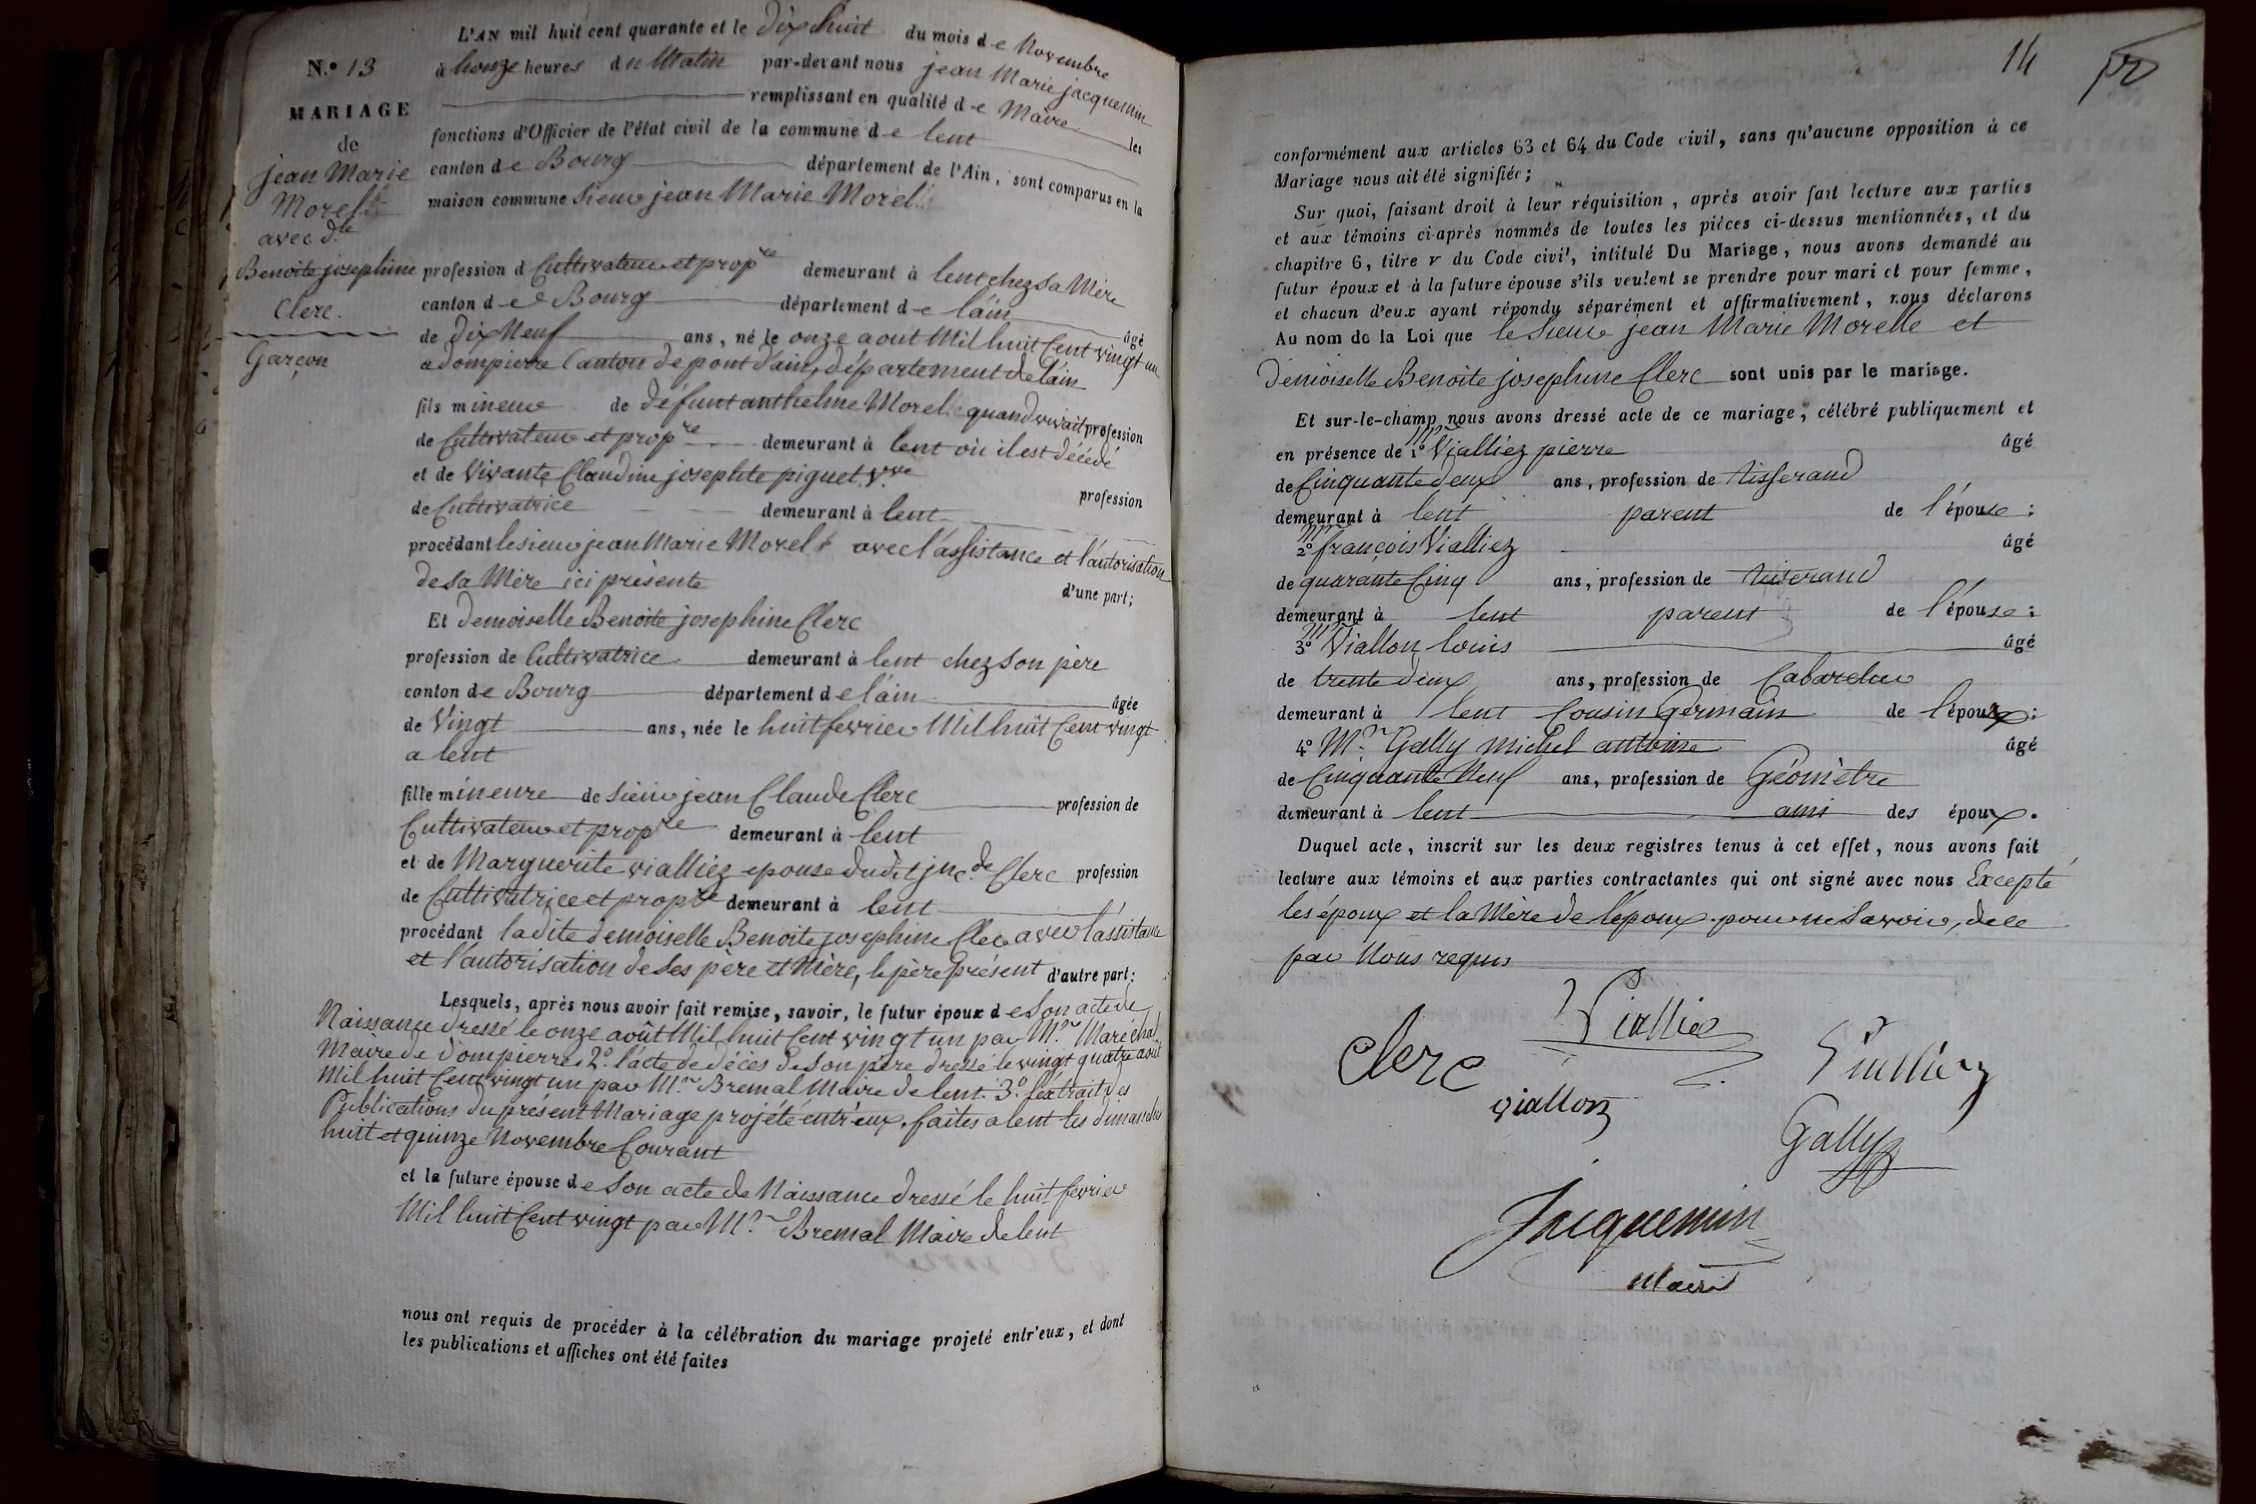 L'AN mil huit cent quarante et le dix huit du mois de Novembre
N.° 13
à honze heures du Matin par-devant nous jean Marie jacquemin
remplissant en qualité de Maire les
MARIAGE
fonctions d'Officier de l'état civil de la commune de lent
de
canton de Bourg département de l'Ain, sont comparus en la
jean Marie
maison commune Sieur jean Marie Morel
Morel
avec dlle
Benoite josephine
Clerc.
Garçon
profession d Cultivateur et propre demeurant à lent chez sa Mère
canton de Bourg département de láin âgé
de dix Neuf ans, né le onze aout Mil huit Cent vingt un
a dompierre Canton de pont d'ain, département de láin
fils mineur de défunt anthelme Morel quand vivait profession
de Cultivateur et propre demeurant à lent où il est décédé
et de Vivante Claudine josephte piguet vve profession
de Cultivatrice demeurant à lent
procédant le sieur jean Marie Morel avec l'assistance et l'autorisation
de sa Mère ici présente d'une part;
Et Demoiselle Benoite josephine Clerc
profession de Cultivatrice demeurant à lent chez son père
canton de Bourg département de láin âgée
de Vingt ans, née le huit fevrier Mil huit Cent vingt
a lent
fille mineure de Sieur jean Claude Clerc profession de
Cultivateur et propre demeurant à lent
et de Marguerite vialliez epouse dudit jn c.de Clerc profession
de Cultivatrice et propre demeurant à lent
procédant la dite demoiselle Benoite josephine Clerc avec l'assistance
et l'autorisation de ses père et mère, le père présent d'autre part:
Lesquels, après nous avoir fait remise, savoir, le futur époux de Son acte de
Naissance dressé le onze août Mil huit Cent vingt un par Mr. Maréchal
Maire de Dompierre. 2.° l'acte de décès de Son père dressé le vingt quatre août
Mil huit Cent vingt un par Mr. Bremal Maire de lent. 3.° l'extrait des
Publications du présent Mariage projété entr'eux, faites a lent les dimanches
huit et quinze Novembre Courant
et la future épouse de Son acte de Naissance dressé le huit fevrier
Mil huit Cent vingt par Mr. Bremal Maire de lent
nous ont requis de procéder à la célébration du mariage projeté entr'eux, et dont
les publications et affiches ont été faites
14
conformément aux articles 63 et 64 du Code civil, sans qu'aucune opposition à ce
Mariage nous ait été signifiée;
Sur quoi, faisant droit à leur réquisition, après avoir fait lecture aux parties
et aux témoins ci-après nommés de toutes les pièces ci-dessus mentionnées, et du
chapitre 6, titre v du Code civil, intitulé Du Mariage, nous avons demandé au
futur époux et à la future épouse s'ils veulent se prendre pour mari et pour femme,
et chacun d'eux ayant répondu séparément et affirmativement, nous déclarons
Au nom de la Loi que le Sieur jean Marie Morelle et
Demoiselle Benoite josephine Clerc sont unis par le mariage.
Et sur-le-champ nous avons dressé acte de ce mariage, célébré publiquement et
en présence de 1° Mr Vialliez pierre âgé
de Cinquante deux ans, profession de tisserand
demeurant à lent parent de l'épouse:
2° Mr françois Vialliez âgé
de quarante Cinq ans, profession de tisserand
demeurant à lent parent de l'épouse:
3° Mr Viallon louis âgé
de trente deux ans, profession de Cabaretier
demeurant à lent Cousin Germain de l'époux:
4° Mr. Gally michel antoine âgé
de Cinquante Neuf ans, profession de Géomètre
demeurant à lent ami des époux.
Duquel acte, inscrit sur les deux registres tenus à cet effet, nous avons fait
lecture aux témoins et aux parties contractantes qui ont signé avec nous Excepté
les époux et la Mère de l'époux pour ne savoir, de ce
par Nous requis
Viallie
Clerc
Vialliez
viallon
Gally
Jacquemin
Maire